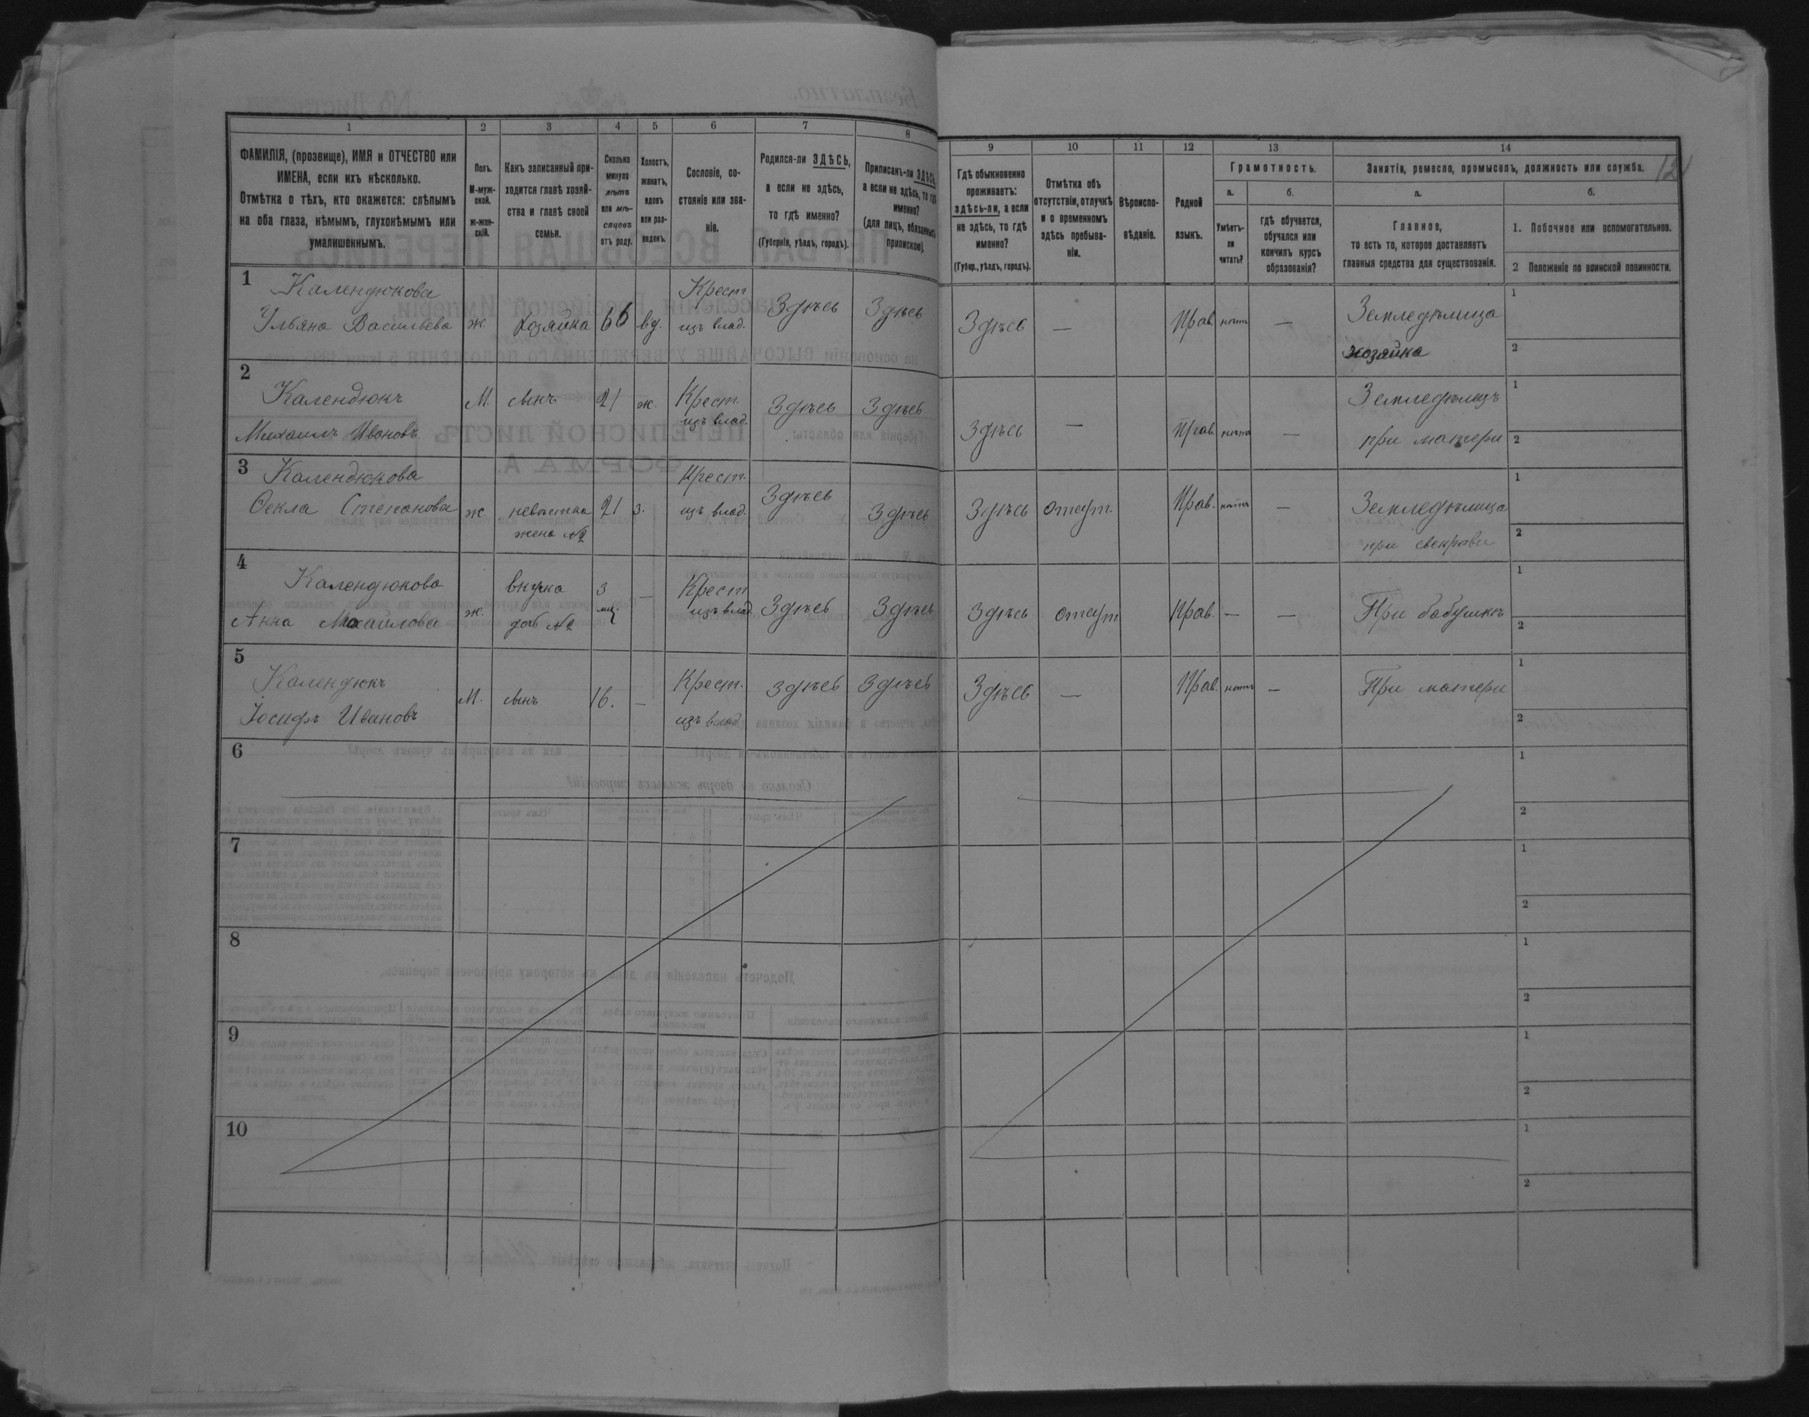 1 2 3 4 5 6 7 8 9 10 11 12 13 14
ФАМИЛІЯ, (прозвище), ИМЯ и ОТЧЕСТВО или
ИМЕНА, если ихъ нѣсколько.
Отмѣтка о тѣхъ, кто окажется: слѣпымъ
на оба глаза, нѣмымъ, глухонѣмымъ или
умалишеннымъ.
Полъ.
М-муж-
ской.
ж-жен-
скій.
Какъ записанный при-
ходится главѣ хозяй-
ства и главѣ своей
семьи.
Сколько
минуло
лѣтъ
или мѣ-
сяцевъ
отъ роду.
Холостъ,
женатъ,
вдовъ
или раз-
веденъ.
Сословіе, со-
стояніе или зва-
ніе.
Родился-ли ЗДѢСЬ,
а если не здѣсь,
то гдѣ именно?
(Губернія, уѣздъ, городъ).
Приписанъ-ли ЗДѢСЬ,
а если не здѣсь, то гдѣ
именно?
(для лицъ, обязанныхъ
припискою).
Гдѣ обыкновенно
проживаетъ:
здѣсь-ли, а если
не здѣсь, то гдѣ
именно?
(Губер., уѣздъ, городъ).
Отмѣтка объ
отсутствіи, отлучкѣ
и о временномъ
здѣсь пребыва-
ніи.
Вѣроиспо-
вѣданіе.
Родной
языкъ.
Грамотность.
а.
Умѣетъ-
ли
читать?
б.
гдѣ обучается,
обучался или
кончилъ курсъ
образованія?
Занятія, ремесло, промыселъ, должность или служба.
а.
Главное,
то есть то, которое доставляетъ
главныя средства для существованія.
б.
1. Побочное или вспомогательное.
2 Положеніе по воинской повинности.
1 Календюкова Крест
Ульяна Васильева ж хозяйка 66 вд. изъ влад. Здѣсь Здѣсь Здѣсь — Прав. нѣтъ — Земледѣлица 1
хозяйка 2
2 Календюкъ М. сынъ 21 ж. Крест. Здѣсь Здѣсь Земледѣлецъ 1
Михаилъ Ивановъ изъ влад. Здѣсь — Прав. нѣтъ — при матери 2
3 Календюкова Крест. Здѣсь 1
Фекла Степанова ж невѣстка 21 з. изъ влад. Здѣсь Здѣсь отсут. Прав. нѣтъ — Земледѣлица
жена №2 при свекрови 2
4 Календюкова внучка 3 — Крест 1
Анна Михайлова ж. доч №2 мц. изъ влад Здѣсь Здѣсь Здѣсь отсут Прав. — — При бабушкѣ 2
5 Календюкъ Крест. 1
Іосифъ Ивановъ М. сынъ 16. — изъ влад Здѣсь Здѣсь Здѣсь — Прав. нѣтъ — При матери 2
6 1
2
7 1
2
8 1
2
9 1
2
10 1
2